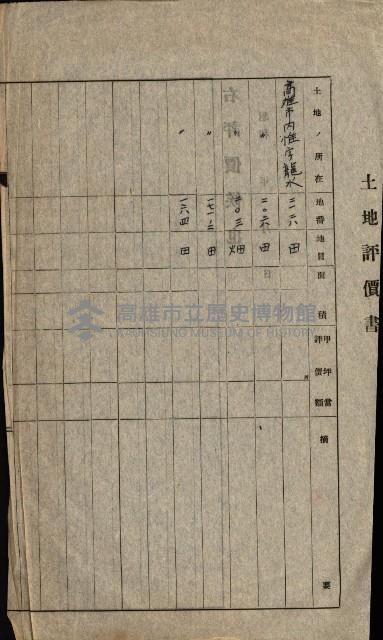 土地評價書
土地ノ所在 地番 地目 面積 甲坪當評價額 摘要
高雄市內惟字龍水 二一六 田
〃 二〇六 田
〃 畑
〃 田
〃 一六四 田
右評價候也
高雄市立歷史博物館
KAOHSIUNG MUSEUM OF HISTORY